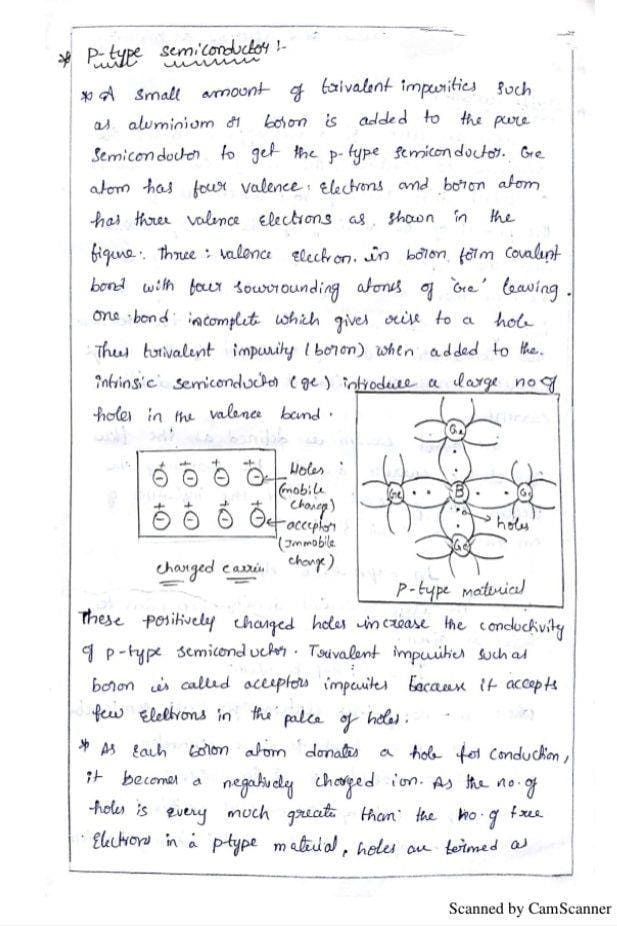 * P-type semiconductor :-
* A small amount of trivalent impurities such
as aluminium or boron is added to the pure
semiconductor to get the p-type semiconductor. Ge
atom has four valence electrons and boron atom
has three valence electrons as shown in the
figure. Three valence electron in boron form covalent
bond with four sourrounding atoms of 'Ge' leaving
one bond incomplete which gives rise to a hole
Thus trivalent impurity (boron) when added to the
intrinsic semiconductor (ge) introduce a large no of
holes in the valence band.
Holes
(mobile
charge)
acceptor
(Immobile
charge)
charged
Ge
Ge
B
Ge
holes
Ge
P-type material
These positively charged holes increase the conductivity
of p-type semiconductor. Trivalent impurities such as
boron is called acceptors because it accepts
few electrons in the palce of holes.
* As each boron atom donates a hole for conduction,
it becomes a negatively charged ion. As the no. of
holes is every much greater than the no. of free
electrons in a p-type material, holes are termed as
Scanned by CamScanner